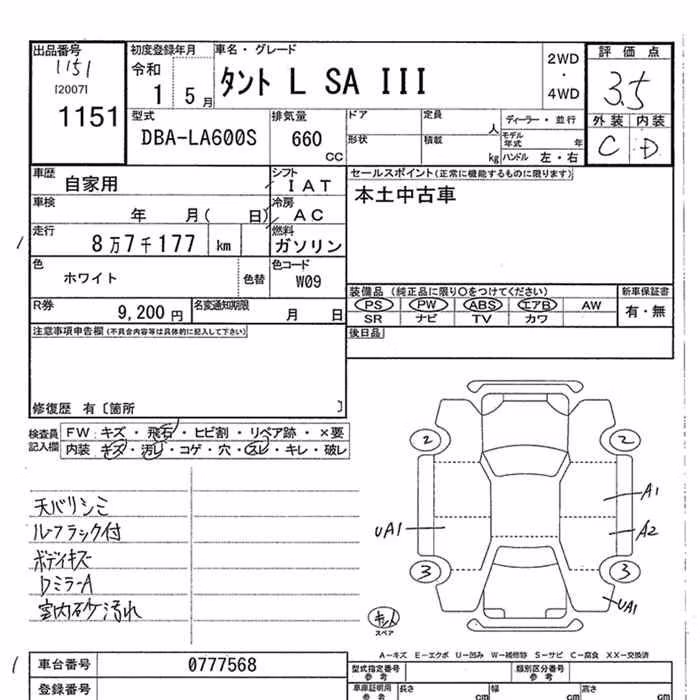 出品番号
1151
[2007]
1151
初度登録年月
令和
1 5月
車名・グレード
タント L SA III
2WD
・
4WD
評価点
3.5
外装 内装
C D
型式
DBA-LA600S
排気量
660
CC
ドア
形状
定員
人
積載
kg
ディーラー・並行
モデル年式 年
ハンドル 左・右
車歴
自家用
シフト
I A T
車検
年 月( 日)
冷房
A C
走行
8万7千177 km
燃料
ガソリン
色
ホワイト
色替
色コード
W09
R券
9,200 円
名変通知期限
月 日
セールスポイント(正常に機能するものに限ります)
本土中古車
装備品 (純正品に限り○をつけてください)
PS PW ABS エアB AW
SR ナビ TV カワ
新車保証書
有・無
後日品
注意事項申告欄(不具合内容等は具体的に記入して下さい)
修復歴 有〔箇所 〕
検査員
記入欄
FW:キズ・飛石・ヒビ割・リペア跡・×要
内装 キズ・汚レ・コゲ・穴・スレ・キレ・破レ
天バリシミ
ルーフラック付
ボディキズ
DミラーA
室内砂ケ汚れ
2 2
A1
UA1
A2
3 3
UA1
キン
スペア
A-キズ E-エクボ U-凹み W-補修跡 S-サビ C-腐食 XX-交換済
車台番号
0777568
登録番号
型式指定番号
参考
類別区分番号
参考
車庫証明用
参考
長さ cm
幅 cm
高さ cm